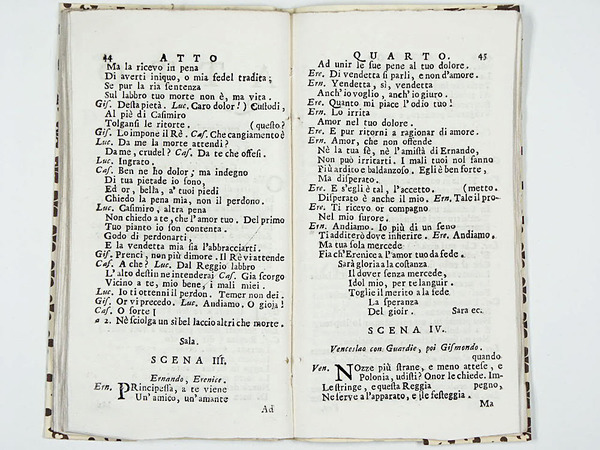 44 ATTO
Ma la ricevo in pena
Di averti iniquo, o mia fedel tradita;
Se pur la ria sentenza
Sul labbro tuo morte non è, ma vita.
Gis. Desta pietà. Luc. Caro dolor!) Custodi,
Al piè di Casimiro
Tolgansi le ritorte. (questo?
Gis. Lo impone il Rè. Cas. Che cangiamento è
Luc. Da me la morte attendi?
Da me, crudel? Cas. Da te che offesi.
Luc. Ingrato.
Cas. Ben ne ho dolor; ma indegno
Di tua pietade io sono,
Ed or, bella, a' tuoi piedi
Chiedo la pena mia, non il perdono.
Luc. Casimiro, altra pena
Non chiedo a te, che l'amor tuo. Del primo
Tuo pianto io son contenta.
Godo di perdonarti,
E la vendetta mia sia l'abbracciarti.
Gis. Prenci, non più dimore. Il Rè vi attende
Cas. A che? Luc. Dal Reggio labbro
L'alto destin ne intenderai Cas. Gia scorgo
Vicino a te, mio bene, i mali miei.
Luc. Io ti ottenni il perdon. Temer non dei.
Gis. Or vi precedo. Luc. Andiamo. O gioja!
Cas. O sorte!
a 2. Nè sciolga un si bel laccio altri che morte.
Sala.
SCENA III.
Ernando, Erenice.
Ern. PRincipessa, a te viene
Un'amico, un'amante
Ad
QUARTO. 45
Ad unir le sue pene al tuo dolore.
Ere. Di vendetta si parli, e non d'amore.
Ern. Vendetta, sì, vendetta
Anch'io voglio, anch'io giuro.
Ere. Quanto mi piace l'odio tuo!
Ern. Lo irrita
Amor nel tuo dolore.
Ere. E pur ritorni a ragionar di amore.
Ern. Amor, che non offende
Nè la tua fè, nè l'amistà di Ernando,
Non può irritarti. I mali tuoi nol fanno
Più ardito e baldanzoso. Egli è ben forte,
Ma disperato.
Ere. E s'egli è tal, l'accetto. (metto.
Disperato è anche il mio. Ern. Tale il pro-
Ere. Ti ricevo or compagno
Nel mio furore.
Ern. Andiamo. Io più di un seno
Ti additerò dove inferire. Ere. Andiamo.
Ma tua sola mercede
Fia ch'Erenice a l'amor tuo da fede.
Sarà gloria a la costanza
Il dover senza mercede,
Idol mio, per te languir.
Toglie il merito a la fede
La speranza
Del gioir. Sara ec.
SCENA IV.
Venceslao con Guardie, poi Gismondo.
quando
Ven. NOzze più strane, e meno attese, e
Polonia, udisti? Onor le chiede. Im-
Le stringe, e questa Reggia pegno,
Ne serve a l'apparato, e le festeggia.
Ma